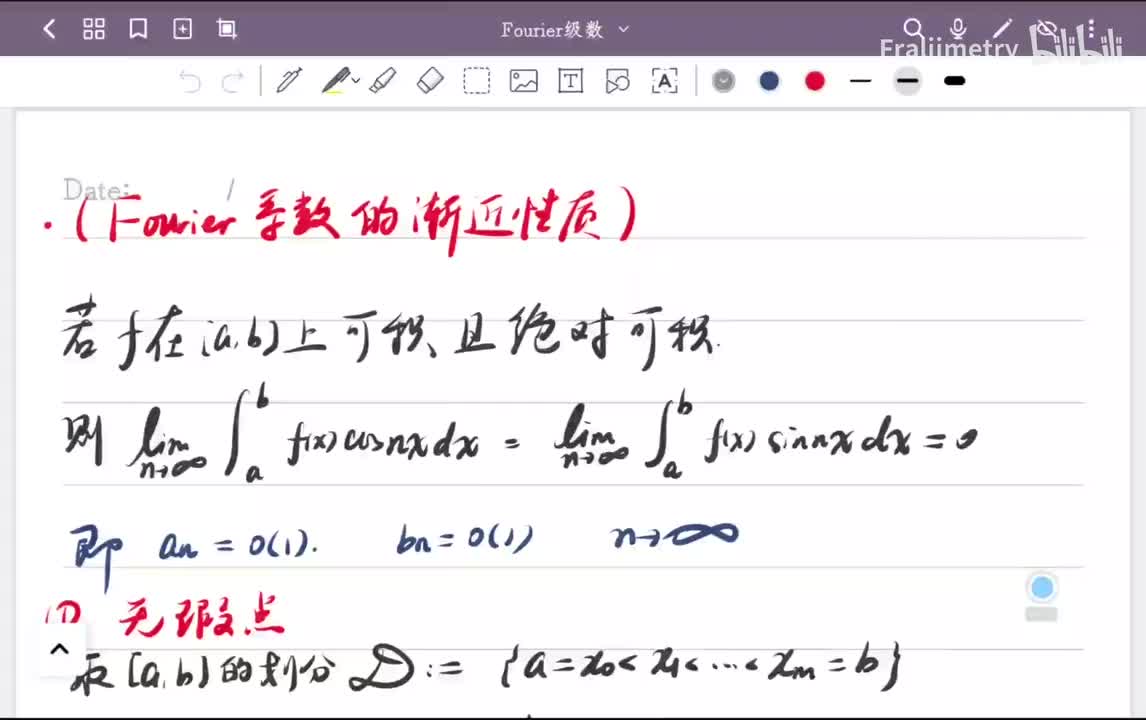 Fourier级数
Fraliimetry bilibili
Date: /
·(Fourier系数的渐近性质)
若f在[a,b]上可积且绝对可积.
则 lim_{n→∞} ∫_a^b f(x)cosnxdx = lim_{n→∞} ∫_a^b f(x)sinnxdx=0
即 an = o(1). bn=o(1) n→∞
(1) 无瑕点
取[a,b]的划分 D:= {a=x₀<x₁<…<xₘ=b}